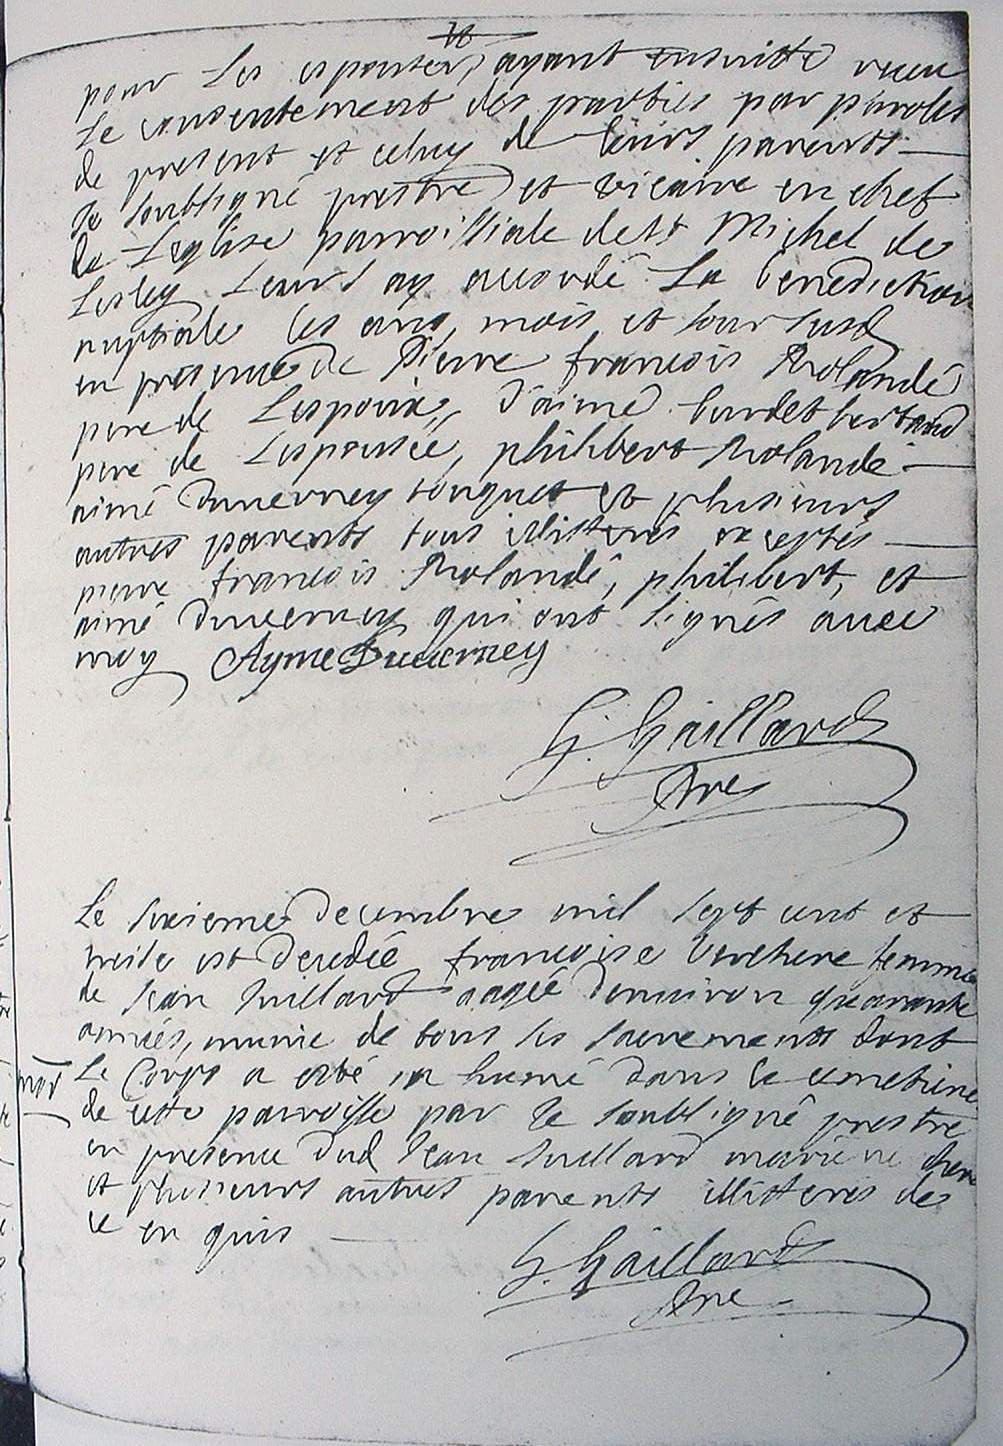 pour Les espouser, ayant ensuitte receu
Le consentement des parties par paroles
de present et celuy de leurs parents
Je soubsigné prestre et vicaire en chef
de Leglise parroissiale de St Michel de
Lesley Leurs ay accordé La benediction
nuptiale les ans, mois et jour susd
en presence de Pierre francois Rolandé
pere de Lespoux, d'aimé bertrand
pere de Lespousée, philibert Rolandé
aimé Duverney et plusieurs
autres parents tous illitterés exceptés
pierre francois Rolandé, philibert, et
aimé Duverney qui ont signés avec
moy Ayme Duverney
G. Gaillard
Pre
Le sixieme decembre mil sept cent et
treize est decedée francoise Verchere femme
de Jean Juillard aagée d'environ quarante
années, munie de tous les sacrements dont
mor Le Corps a esté in humé dans le cimetiere
de cette parroisse par Je soubsigné prestre
en presence dud Jean Juillard
et plusieurs autres parents illitterés de
ce en quis
G. Gaillard
Pre